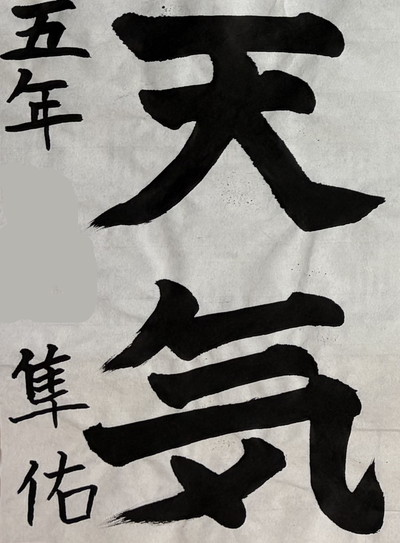 天気
五年
隼佑